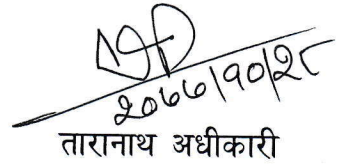 २०७७।१०।२८
तारानाथ अधीकारी